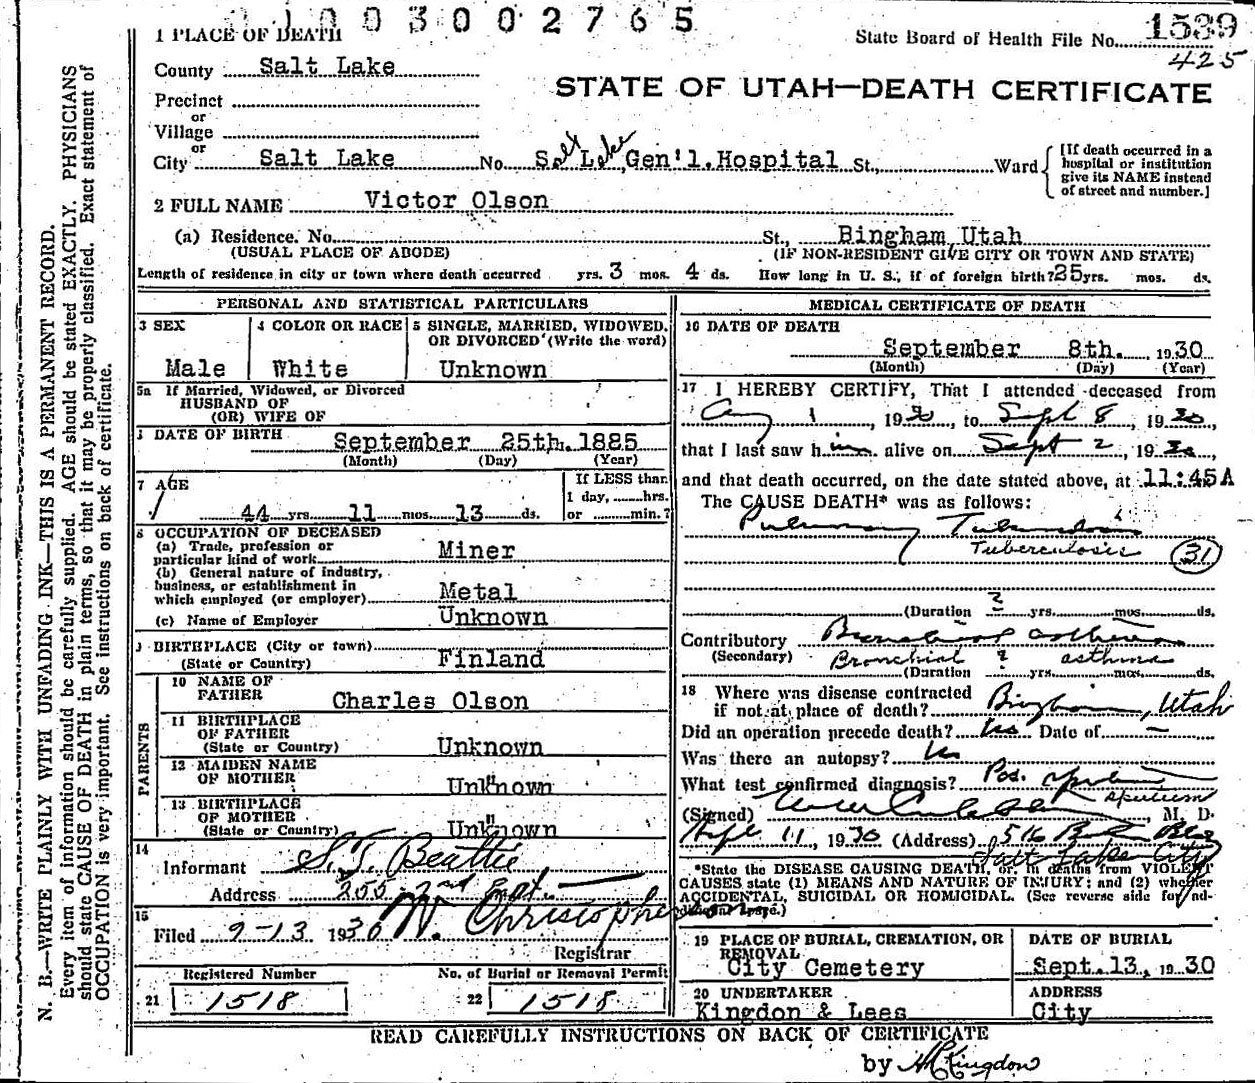 003002765
1 PLACE OF DEATH
State Board of Health File No. 1539
425
County Salt Lake
STATE OF UTAH—DEATH CERTIFICATE
Precinct
or
Village
or
City Salt Lake No. Salt Lake, Gen'l. Hospital St., Ward
[If death occurred in a
hospital or institution
give its NAME instead
of street and number.]
2 FULL NAME Victor Olson
(a) Residence. No. St., Bingham, Utah
(USUAL PLACE OF ABODE) (IF NON-RESIDENT GIVE CITY OR TOWN AND STATE)
Length of residence in city or town where death occurred yrs. 3 mos. 4 ds. How long in U. S., if of foreign birth? 25 yrs. mos. ds.
PERSONAL AND STATISTICAL PARTICULARS
3 SEX
Male
4 COLOR OR RACE
White
5 SINGLE, MARRIED, WIDOWED,
OR DIVORCED (Write the word)
Unknown
5a If Married, Widowed, or Divorced
HUSBAND OF
(OR) WIFE OF
DATE OF BIRTH
September 25th. 1885
(Month) (Day) (Year)
7 AGE
44 yrs. 11 mos. 13 ds.
If LESS than
1 day, hrs.
or min.?
8 OCCUPATION OF DECEASED
(a) Trade, profession or
particular kind of work Miner
(b) General nature of industry,
business, or establishment in
which employed (or employer) Metal
(c) Name of Employer Unknown
9 BIRTHPLACE (City or town)
(State or Country) Finland
PARENTS
10 NAME OF
FATHER Charles Olson
11 BIRTHPLACE
OF FATHER
(State or Country) Unknown
12 MAIDEN NAME
OF MOTHER Unknown
13 BIRTHPLACE
OF MOTHER
(State or Country) Unknown
14
Informant S. T. Beattie
Address 255 2nd East.
15
Filed 9-13 1930 W. Christopherson
Registrar
Registered Number
21 1518
No. of Burial or Removal Permit
22 1518
MEDICAL CERTIFICATE OF DEATH
16 DATE OF DEATH
September 8th. 1930
(Month) (Day) (Year)
17 I HEREBY CERTIFY, That I attended deceased from
Aug 1, 1930 to Sept 8, 1930,
that I last saw him alive on Sept 2, 1930,
and that death occurred, on the date stated above, at 11:45A
The CAUSE DEATH* was as follows:
Pulmonary Tuberculosis
Tuberculosis 31
(Duration ? yrs. mos. ds.
Contributory Bronchial asthma
(Secondary) Bronchial asthma
(Duration ? yrs. mos. ds.
18 Where was disease contracted
if not at place of death? Bingham, Utah
Did an operation precede death? No Date of —
Was there an autopsy? No
What test confirmed diagnosis? Pos. sputum
sputum
(Signed) M. D.
Sept 11, 1930 (Address) 516 Bldg
Salt Lake City
*State the DISEASE CAUSING DEATH, or, in deaths from VIOLENT
CAUSES state (1) MEANS AND NATURE OF INJURY; and (2) whether
ACCIDENTAL, SUICIDAL OR HOMICIDAL. (See reverse side for ad-
ditional space.)
19 PLACE OF BURIAL, CREMATION, OR
REMOVAL
City Cemetery
DATE OF BURIAL
Sept. 13, 1930
20 UNDERTAKER
Kingdon & Lees
ADDRESS
City
READ CAREFULLY INSTRUCTIONS ON BACK OF CERTIFICATE
by Kingdon
N. B.—WRITE PLAINLY WITH UNFADING INK—THIS IS A PERMANENT RECORD.
Every item of information should be carefully supplied. AGE should be stated EXACTLY. PHYSICIANS
should state CAUSE OF DEATH in plain terms, so that it may be properly classified. Exact statement of
OCCUPATION is very important. See instructions on back of certificate.